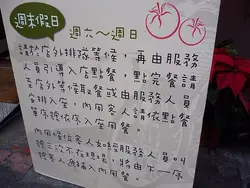 週末假日
週六～週日
請於座外排隊等候，再由服務
人員引導入座點餐，點完餐請
至店外等候取餐或由服務人員
安排入座，內用客人請依點餐
單序號依序入座用餐。
內用候位客人如經服務人員叫
號三次不在現場，將由下一序
號客人遞補入內用餐。